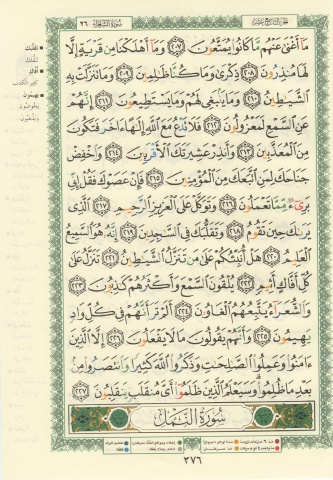 الجزء التاسع عشر
سورة الشعراء
٢٦
مَآ أَغْنَىٰ عَنْهُم مَّا كَانُوا۟ يُمَتَّعُونَ ٢٠٧ وَمَآ أَهْلَكْنَا مِن قَرْيَةٍ إِلَّا
لَهَا مُنذِرُونَ ٢٠٨ ذِكْرَىٰ وَمَا كُنَّا ظَـٰلِمِينَ ٢٠٩ وَمَا تَنَزَّلَتْ بِهِ
ٱلشَّيَـٰطِينُ ٢١٠ وَمَا يَنۢبَغِى لَهُمْ وَمَا يَسْتَطِيعُونَ ٢١١ إِنَّهُمْ
عَنِ ٱلسَّمْعِ لَمَعْزُولُونَ ٢١٢ فَلَا تَدْعُ مَعَ ٱللَّهِ إِلَـٰهًا ءَاخَرَ فَتَكُونَ
مِنَ ٱلْمُعَذَّبِينَ ٢١٣ وَأَنذِرْ عَشِيرَتَكَ ٱلْأَقْرَبِينَ ٢١٤ وَٱخْفِضْ
جَنَاحَكَ لِمَنِ ٱتَّبَعَكَ مِنَ ٱلْمُؤْمِنِينَ ٢١٥ فَإِنْ عَصَوْكَ فَقُلْ إِنِّى
بَرِىٓءٌ مِّمَّا تَعْمَلُونَ ٢١٦ وَتَوَكَّلْ عَلَى ٱلْعَزِيزِ ٱلرَّحِيمِ ٢١٧ ٱلَّذِى
يَرَىٰكَ حِينَ تَقُومُ ٢١٨ وَتَقَلُّبَكَ فِى ٱلسَّـٰجِدِينَ ٢١٩ إِنَّهُۥ هُوَ ٱلسَّمِيعُ
ٱلْعَلِيمُ ٢٢٠ هَلْ أُنَبِّئُكُمْ عَلَىٰ مَن تَنَزَّلُ ٱلشَّيَـٰطِينُ ٢٢١ تَنَزَّلُ عَلَىٰ
كُلِّ أَفَّاكٍ أَثِيمٍ ٢٢٢ يُلْقُونَ ٱلسَّمْعَ وَأَكْثَرُهُمْ كَـٰذِبُونَ ٢٢٣
وَٱلشُّعَرَآءُ يَتَّبِعُهُمُ ٱلْغَاوُۥنَ ٢٢٤ أَلَمْ تَرَ أَنَّهُمْ فِى كُلِّ وَادٍ
يَهِيمُونَ ٢٢٥ وَأَنَّهُمْ يَقُولُونَ مَا لَا يَفْعَلُونَ ٢٢٦ إِلَّا ٱلَّذِينَ
ءَامَنُوا۟ وَعَمِلُوا۟ ٱلصَّـٰلِحَـٰتِ وَذَكَرُوا۟ ٱللَّهَ كَثِيرًا وَٱنتَصَرُوا۟ مِنۢ
بَعْدِ مَا ظُلِمُوا۟ وَسَيَعْلَمُ ٱلَّذِينَ ظَلَمُوٓا۟ أَىَّ مُنقَلَبٍ يَنقَلِبُونَ ٢٢٧
سُورَةُ النَّمْلِ
٣٧٦
تقلّبك
تنقّلك
أفّاك
كثير الكذب
يهيمون
يخوضون
ويذهبون